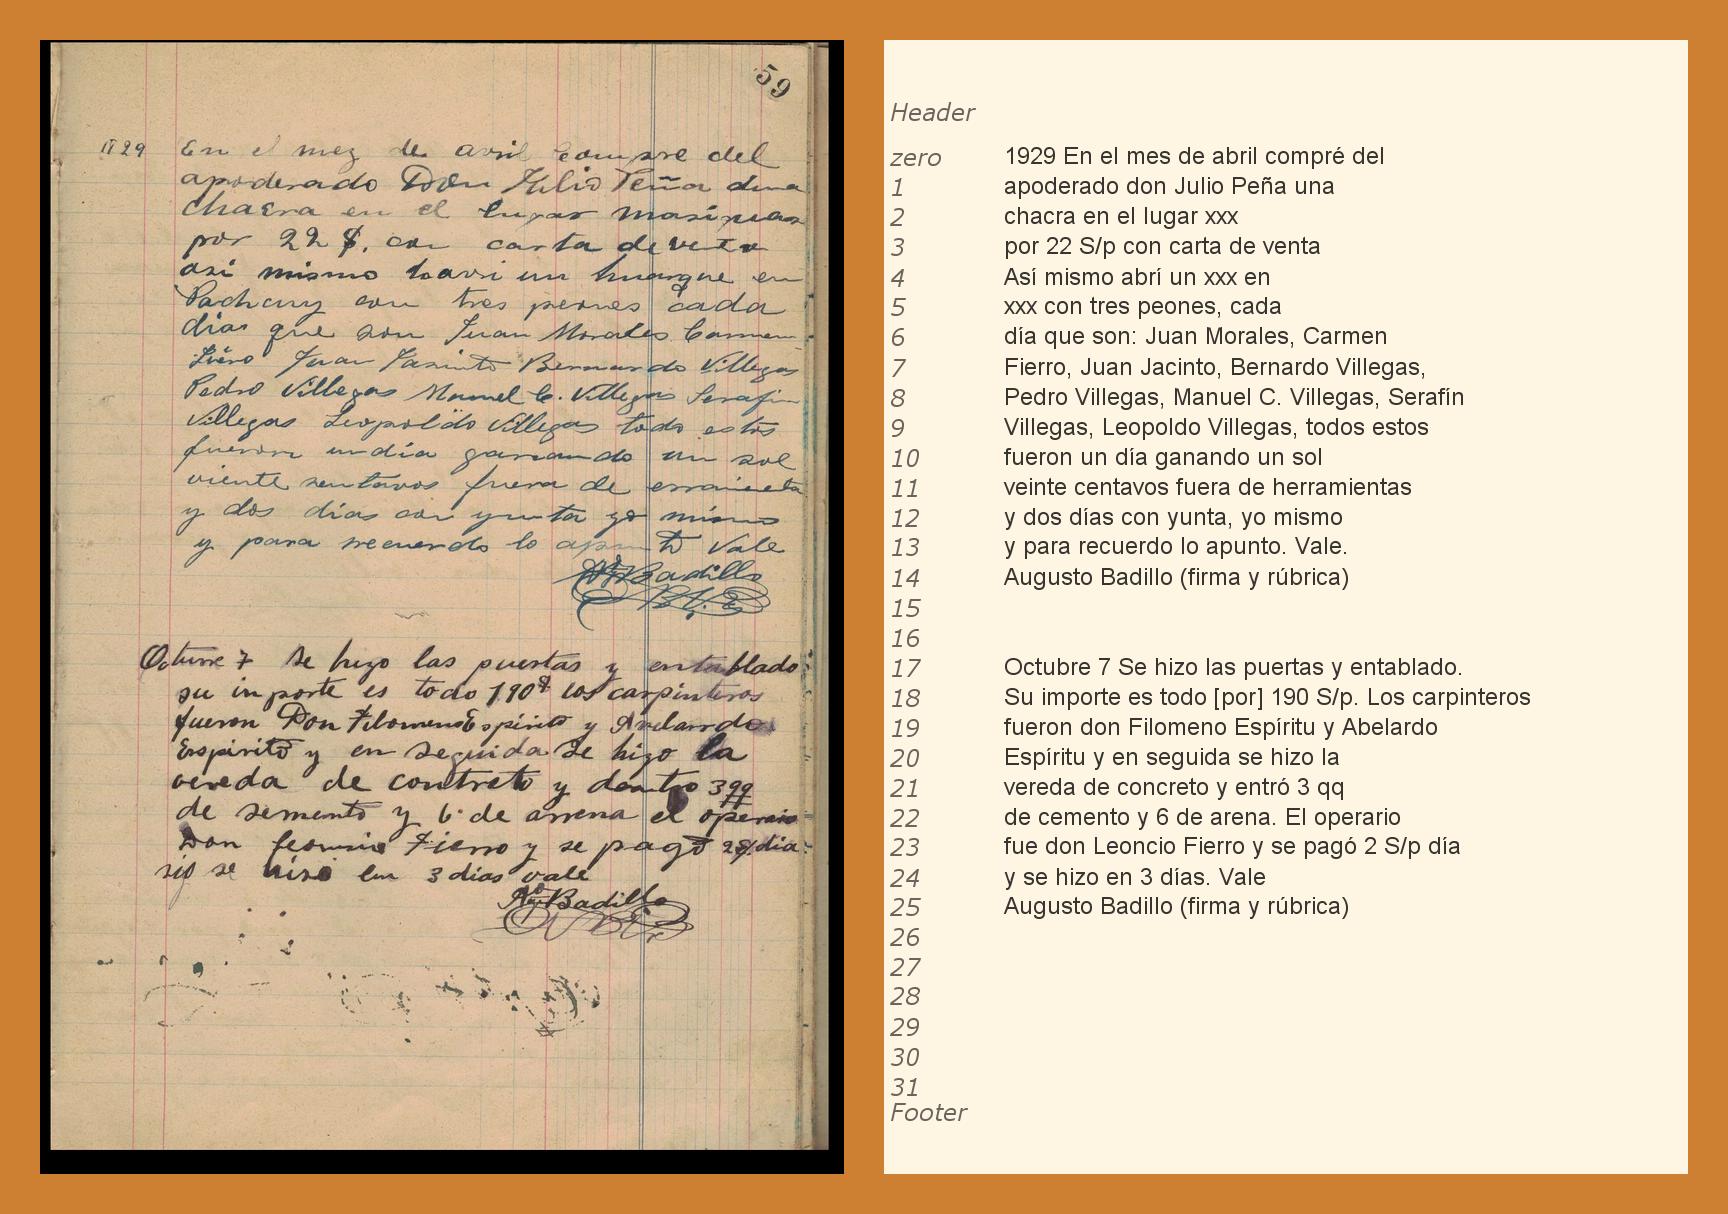 59
1929 En el mez de avril compre del
apoderado Don Julio Peña una
chacra en el lugar masipias
por 22 $. con carta de venta
asi mismo havri un huarque en
Pachcuy con tres peones cada
dias que son Juan Morales Carmen
Fiero Juan Jasinto Bernardo Villegas
Pedro Villegas Manuel C. Villegas Serafin
Villegas Leopoldo Villegas todo estos
fueron undia ganando un sol
viente sentavos fuera de erramienta
y dos dias con yunta yo mismo
y para recuerdo lo apunto Vale
Badillo
Octurre 7 Se hizo las puertas y entablado
su inporte es todo 190 $ los carpinteros
fueron Don Filomeno Espirito y Avelardo
Espirito y en seguida se hizo la
vereda de contreto y dentro 3 qq
de semento y 6 de arrena el operario
Don Fierro y se pagó 2 $/. dia
se hiso en 3 dias vale
Badillo
Header
zero 1929 En el mes de abril compré del
1 apoderado don Julio Peña una
2 chacra en el lugar xxx
3 por 22 S/p con carta de venta
4 Así mismo abrí un xxx en
5 xxx con tres peones, cada
6 día que son: Juan Morales, Carmen
7 Fierro, Juan Jacinto, Bernardo Villegas,
8 Pedro Villegas, Manuel C. Villegas, Serafín
9 Villegas, Leopoldo Villegas, todos estos
10 fueron un día ganando un sol
11 veinte centavos fuera de herramientas
12 y dos días con yunta, yo mismo
13 y para recuerdo lo apunto. Vale.
14 Augusto Badillo (firma y rúbrica)
15
16
17 Octubre 7 Se hizo las puertas y entablado.
18 Su importe es todo [por] 190 S/p. Los carpinteros
19 fueron don Filomeno Espíritu y Abelardo
20 Espíritu y en seguida se hizo la
21 vereda de concreto y entró 3 qq
22 de cemento y 6 de arena. El operario
23 fue don Leoncio Fierro y se pagó 2 S/p día
24 y se hizo en 3 días. Vale
25 Augusto Badillo (firma y rúbrica)
26
27
28
29
30
31
Footer